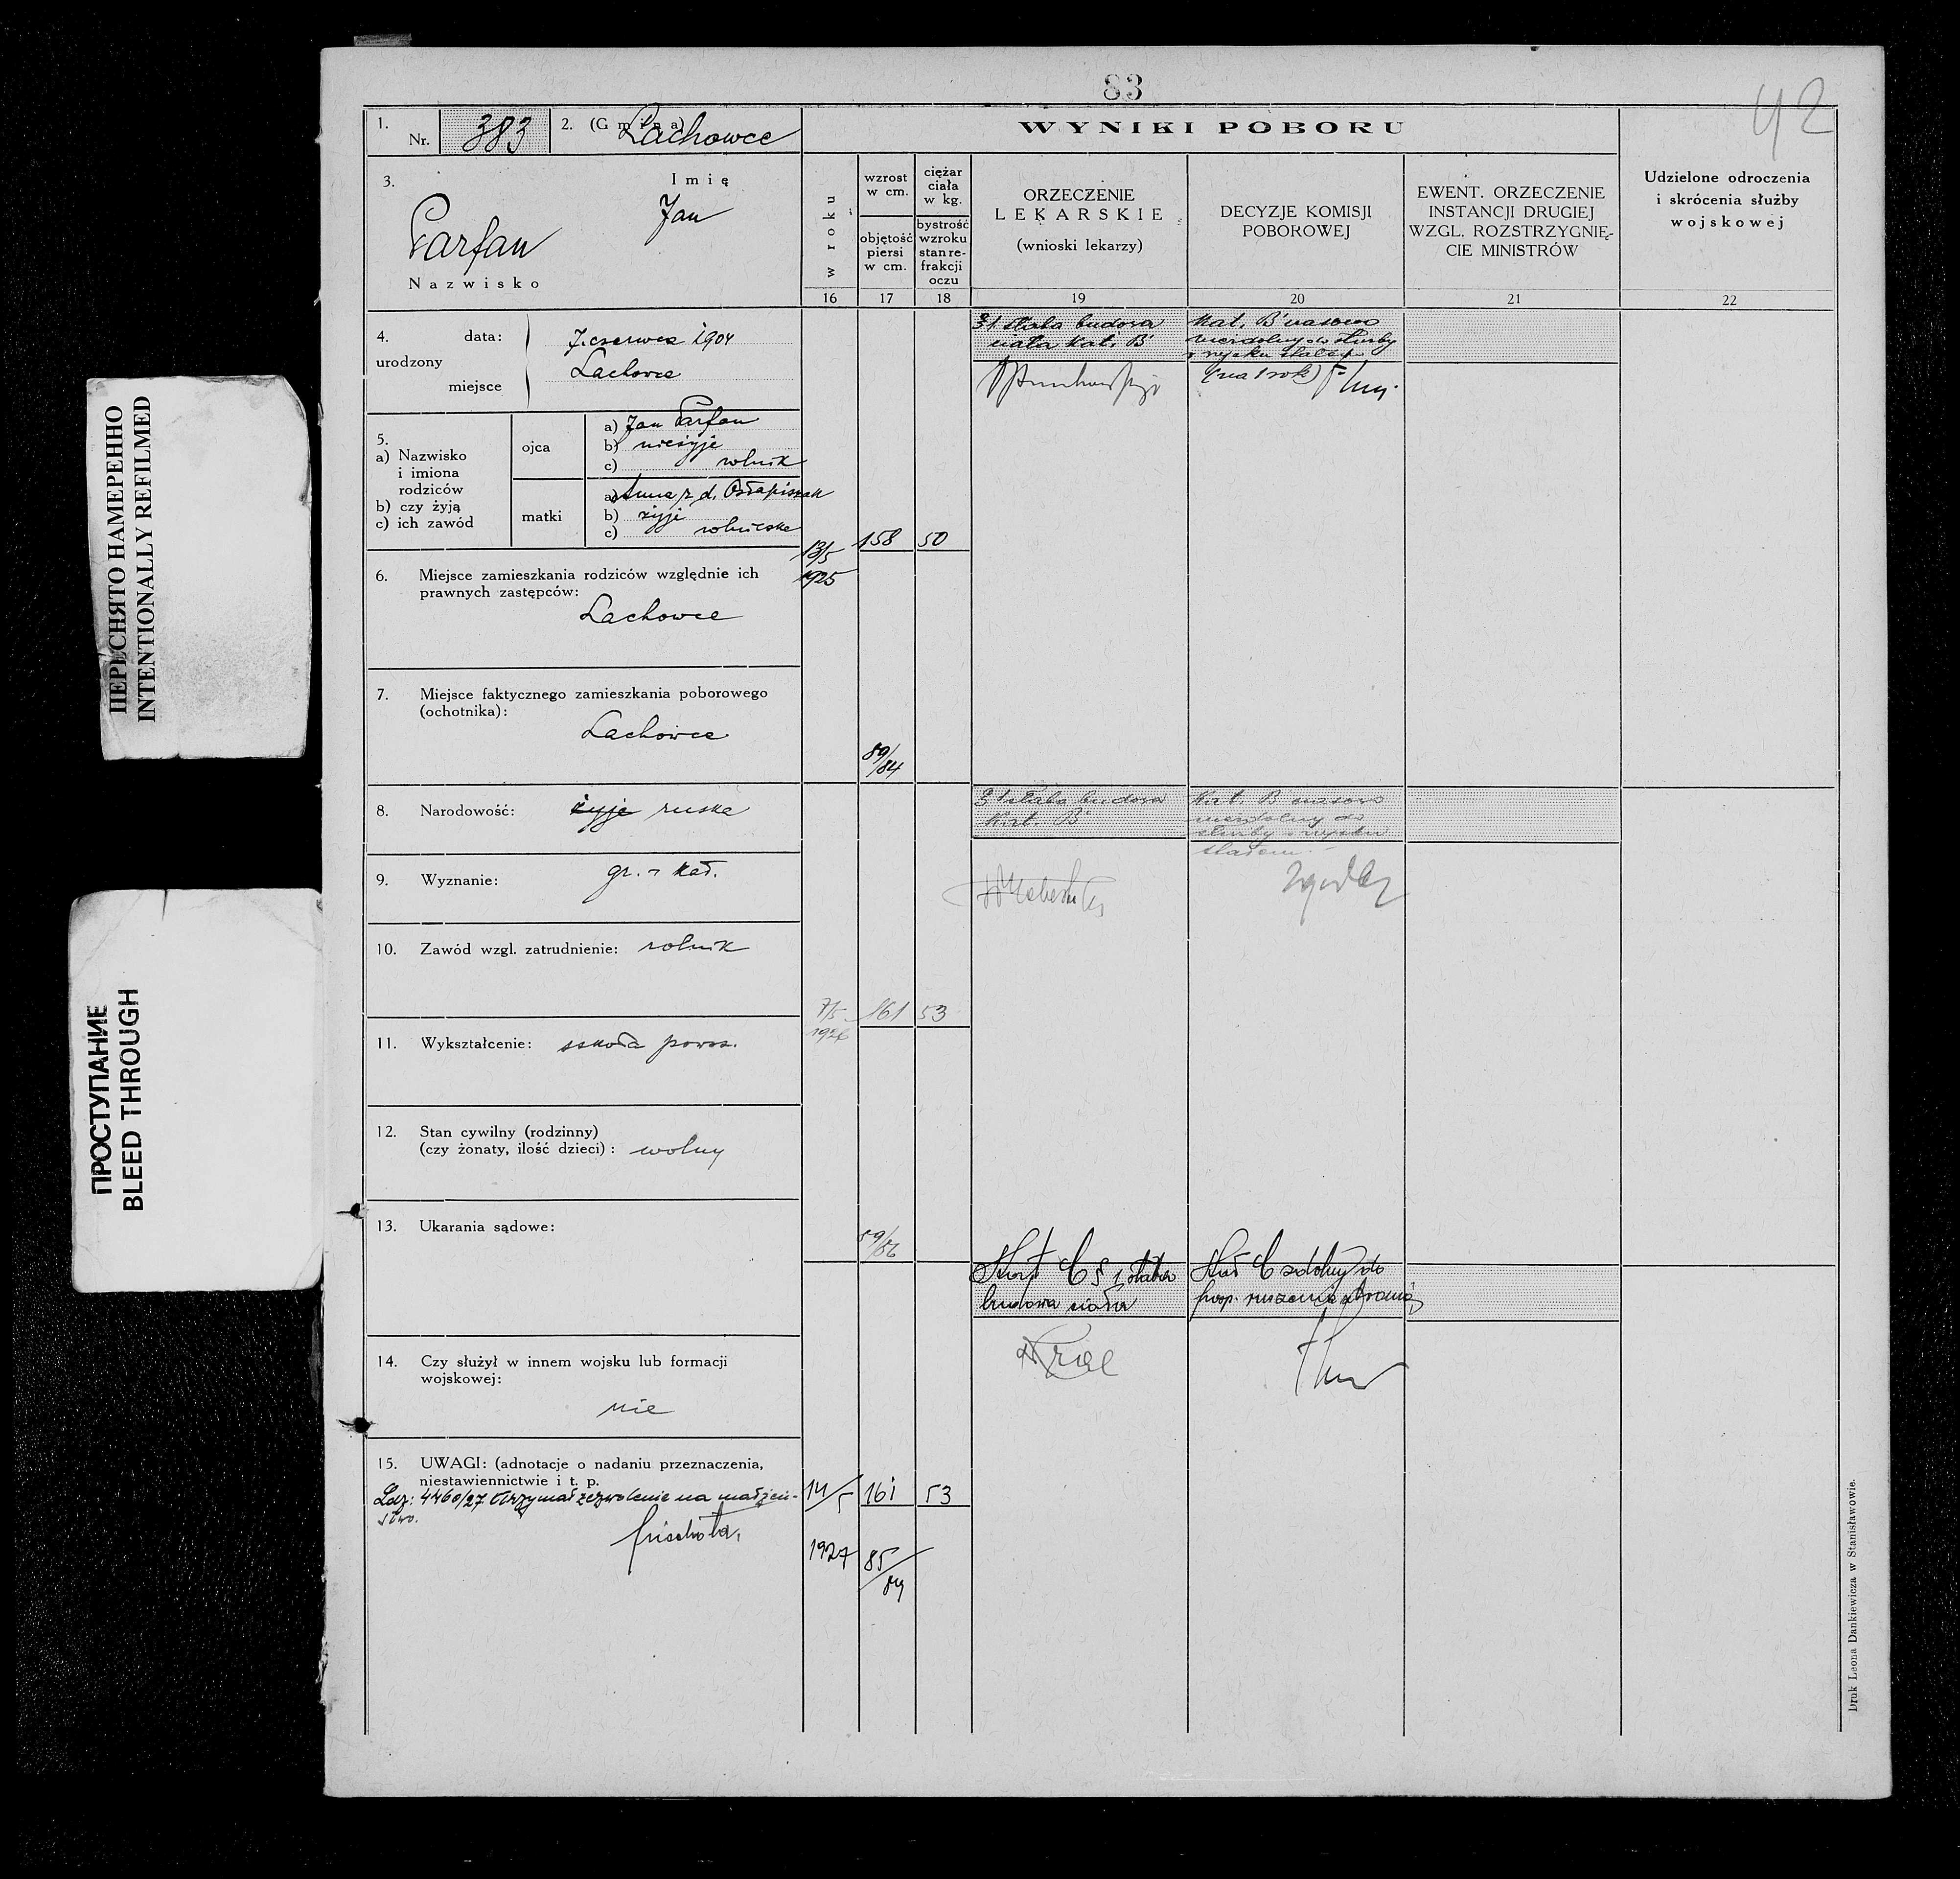 83
42
1.
Nr. 383
2. (Gmina) Lachowce
WYNIKI POBORU
3.
Imię
Jan
Parfan
Nazwisko
w roku
wzrost w cm.
objętość piersi w cm.
ciężar ciała w kg.
bystrość wzroku stan refrakcji oczu
ORZECZENIE
LEKARSKIE
(wnioski lekarzy)
DECYZJE KOMISJI
POBOROWEJ
EWENT. ORZECZENIE
INSTANCJI DRUGIEJ
WZGL. ROZSTRZYGNIĘ-
CIE MINISTRÓW
Udzielone odroczenia
i skrócenia służby
wojskowej
16 17 18 19 20 21 22
4. urodzony
data: 7. czerwca 1904
miejsce Lachowce
5.
a) Nazwisko
i imiona
rodziców
b) czy żyją
c) ich zawód
ojca
a) Jan Parfan
b) nieżyje
c) rolnik
matki
a) Anna z d. Osłapiszak
b) żyje
c) rolniczka
6. Miejsce zamieszkania rodziców względnie ich
prawnych zastępców:
Lachowce
7. Miejsce faktycznego zamieszkania poborowego
(ochotnika):
Lachowce
8. Narodowość: żyje ruska
9. Wyznanie: gr. - kat.
10. Zawód wzgl. zatrudnienie: rolnik
11. Wykształcenie: szkoła powsz.
12. Stan cywilny (rodzinny)
(czy żonaty, ilość dzieci): wolny
13. Ukarania sądowe:
14. Czy służył w innem wojsku lub formacji
wojskowej:
nie
15. UWAGI: (adnotacje o nadaniu przeznaczenia,
niestawiennictwie i t. p.
Ldz: 4460/27 otrzymał zezwolenie na małżeń-
stwo.
13/5
1925
158 50
89/84
§1 słaba budowa
ciała kat. B
kat. B czasowo
niezdolny do służby
w wojsku stałem
(na 1 rok)
7/5
1926
161 53
89/86
§1 słaba budowa
Kat. B
Kat. B czasowo
niezdolny do
służby w wojsku
stałem
14/5
1927
161 53
85/
C § 1 słaba
budowa ciała
C zdolny do
posp. ruszenia z bronią
Druk Leona Dankiewicza w Stanisławowie.
ПЕРЕСНЯТО НАМЕРЕННО
INTENTIONALLY REFILMED
ПРОСТУПАНИЕ
BLEED THROUGH